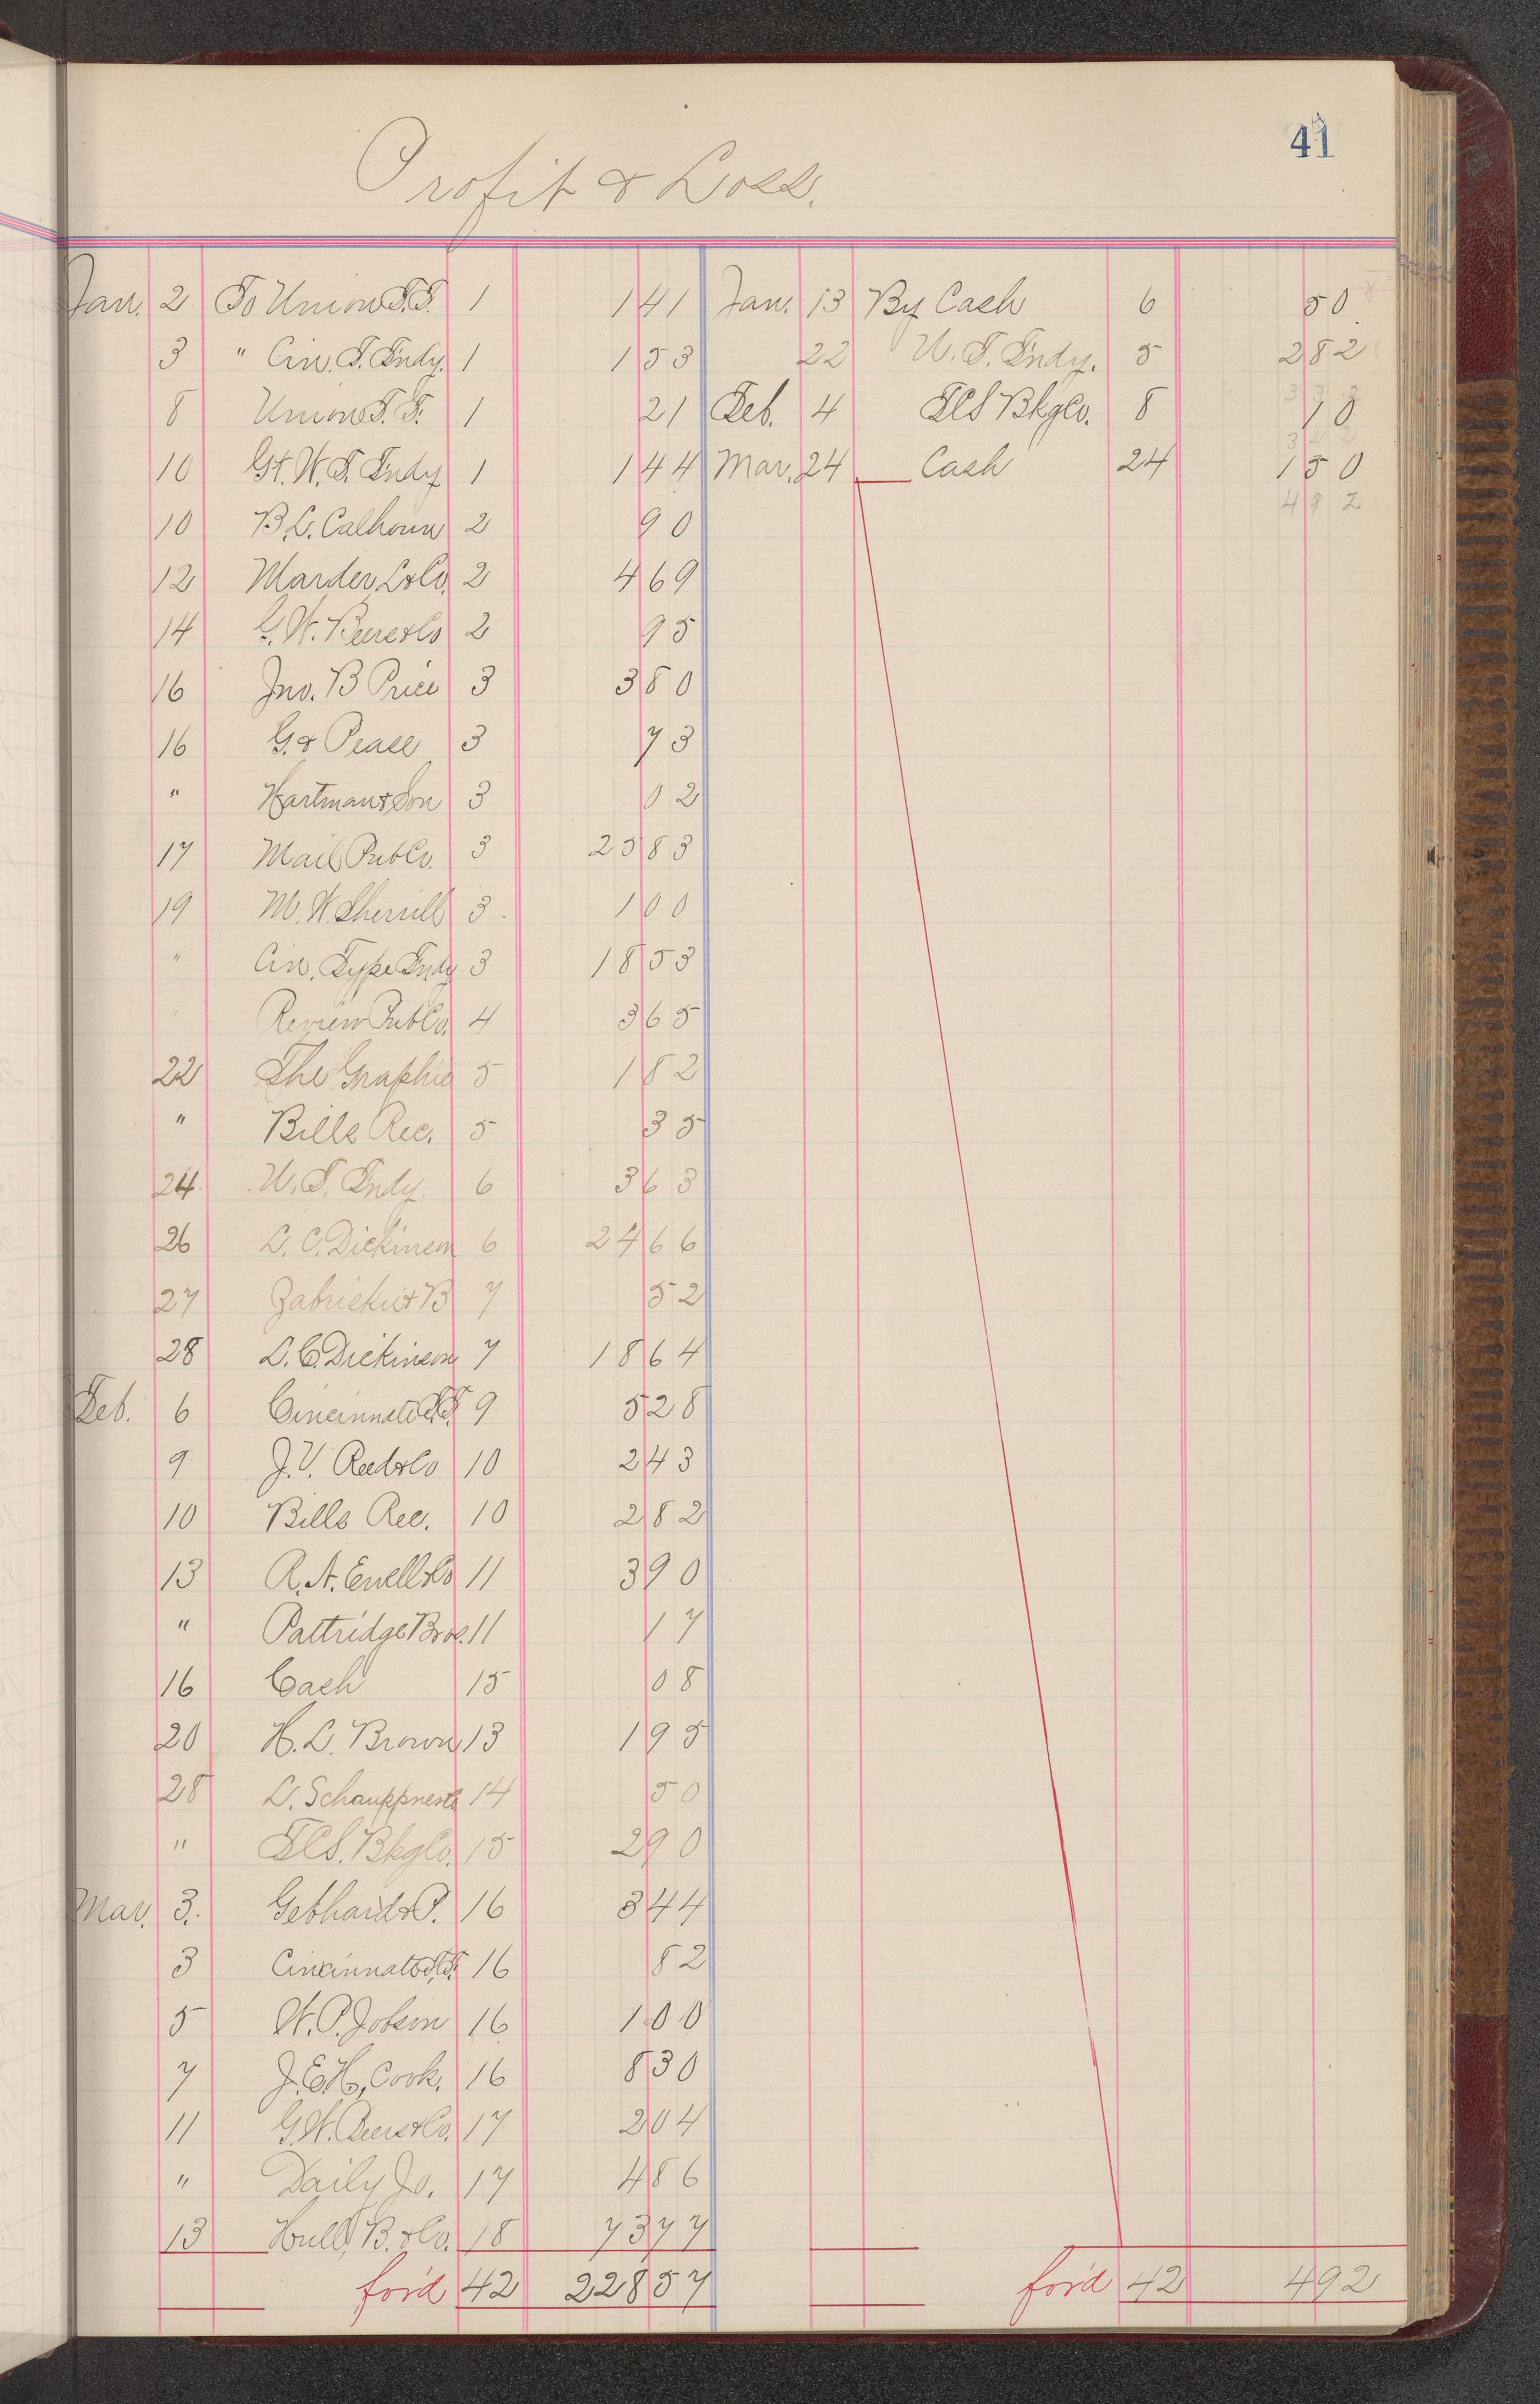 41
Profit & Loss.
Jan. 2 To Union T.F. 1 1 41 Jan. 13 By Cash 6 50
3 " Cin. T. Fndy. 1 1 53 22 U. T. Fndy. 5 2 82
8 Union T. F. 1 21 Feb. 4 FCS Bkg Co. 8 10
10 Gt. W. T. Fndy 1 1 44 Mar. 24 Cash 24 1 50
4 92
10 B.L. Calhoun 2 90
12 Marder, L & Co. 2 4 69
14 G. W. & Co 2 95
16 Jno. B Price 3 3 80
16 G. & Pease 3 73
" Hartman & Son 3 02
17 Mail Pub Co. 3 25 83
19 M. W. Sherrill 3 1 00
" Cin. Type Fndy 3 18 53
" Review Pub Co. 4 3 65
22 The Graphic 5 1 82
" Bills Rec. 5 35
24 U. T. Fndy. 6 3 63
26 L. C. Dickinson 6 24 66
27 Zabriskie & B 7 52
28 L. C. Dickinson 7 18 64
Feb. 6 Cincinnati T.F. 9 5 28
9 J. V. Reed & Co 10 2 43
10 Bills Rec. 10 2 82
13 R. A. & Co 11 3 90
" Pattridge Bros. 11 17
16 Cash 15 08
20 H. L. Brown 13 1 95
28 L. 14 50
" FCS. Bkg Co. 15 2 90
Mar. 3. Gebhard & P. 16 3 44
3 Cincinnati T.F. 16 82
5 W. P. Jobson 16 1 00
7 J. E. H. Cook. 16 8 30
11 G. W. & Co. 17 2 04
" Daily Jo. 17 4 86
13 Hull, B. & Co. 18 73 77
for'd 42 228 57 for'd 42 4 92